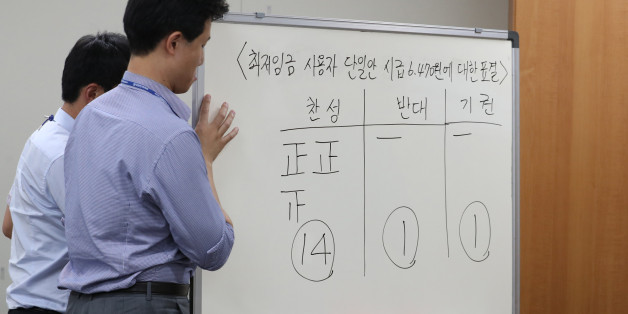 <최저임금 사용자 단일안 시급 6.470원에 대한 표결>
찬성 반대 기권
正 正 一 一
14 1 1